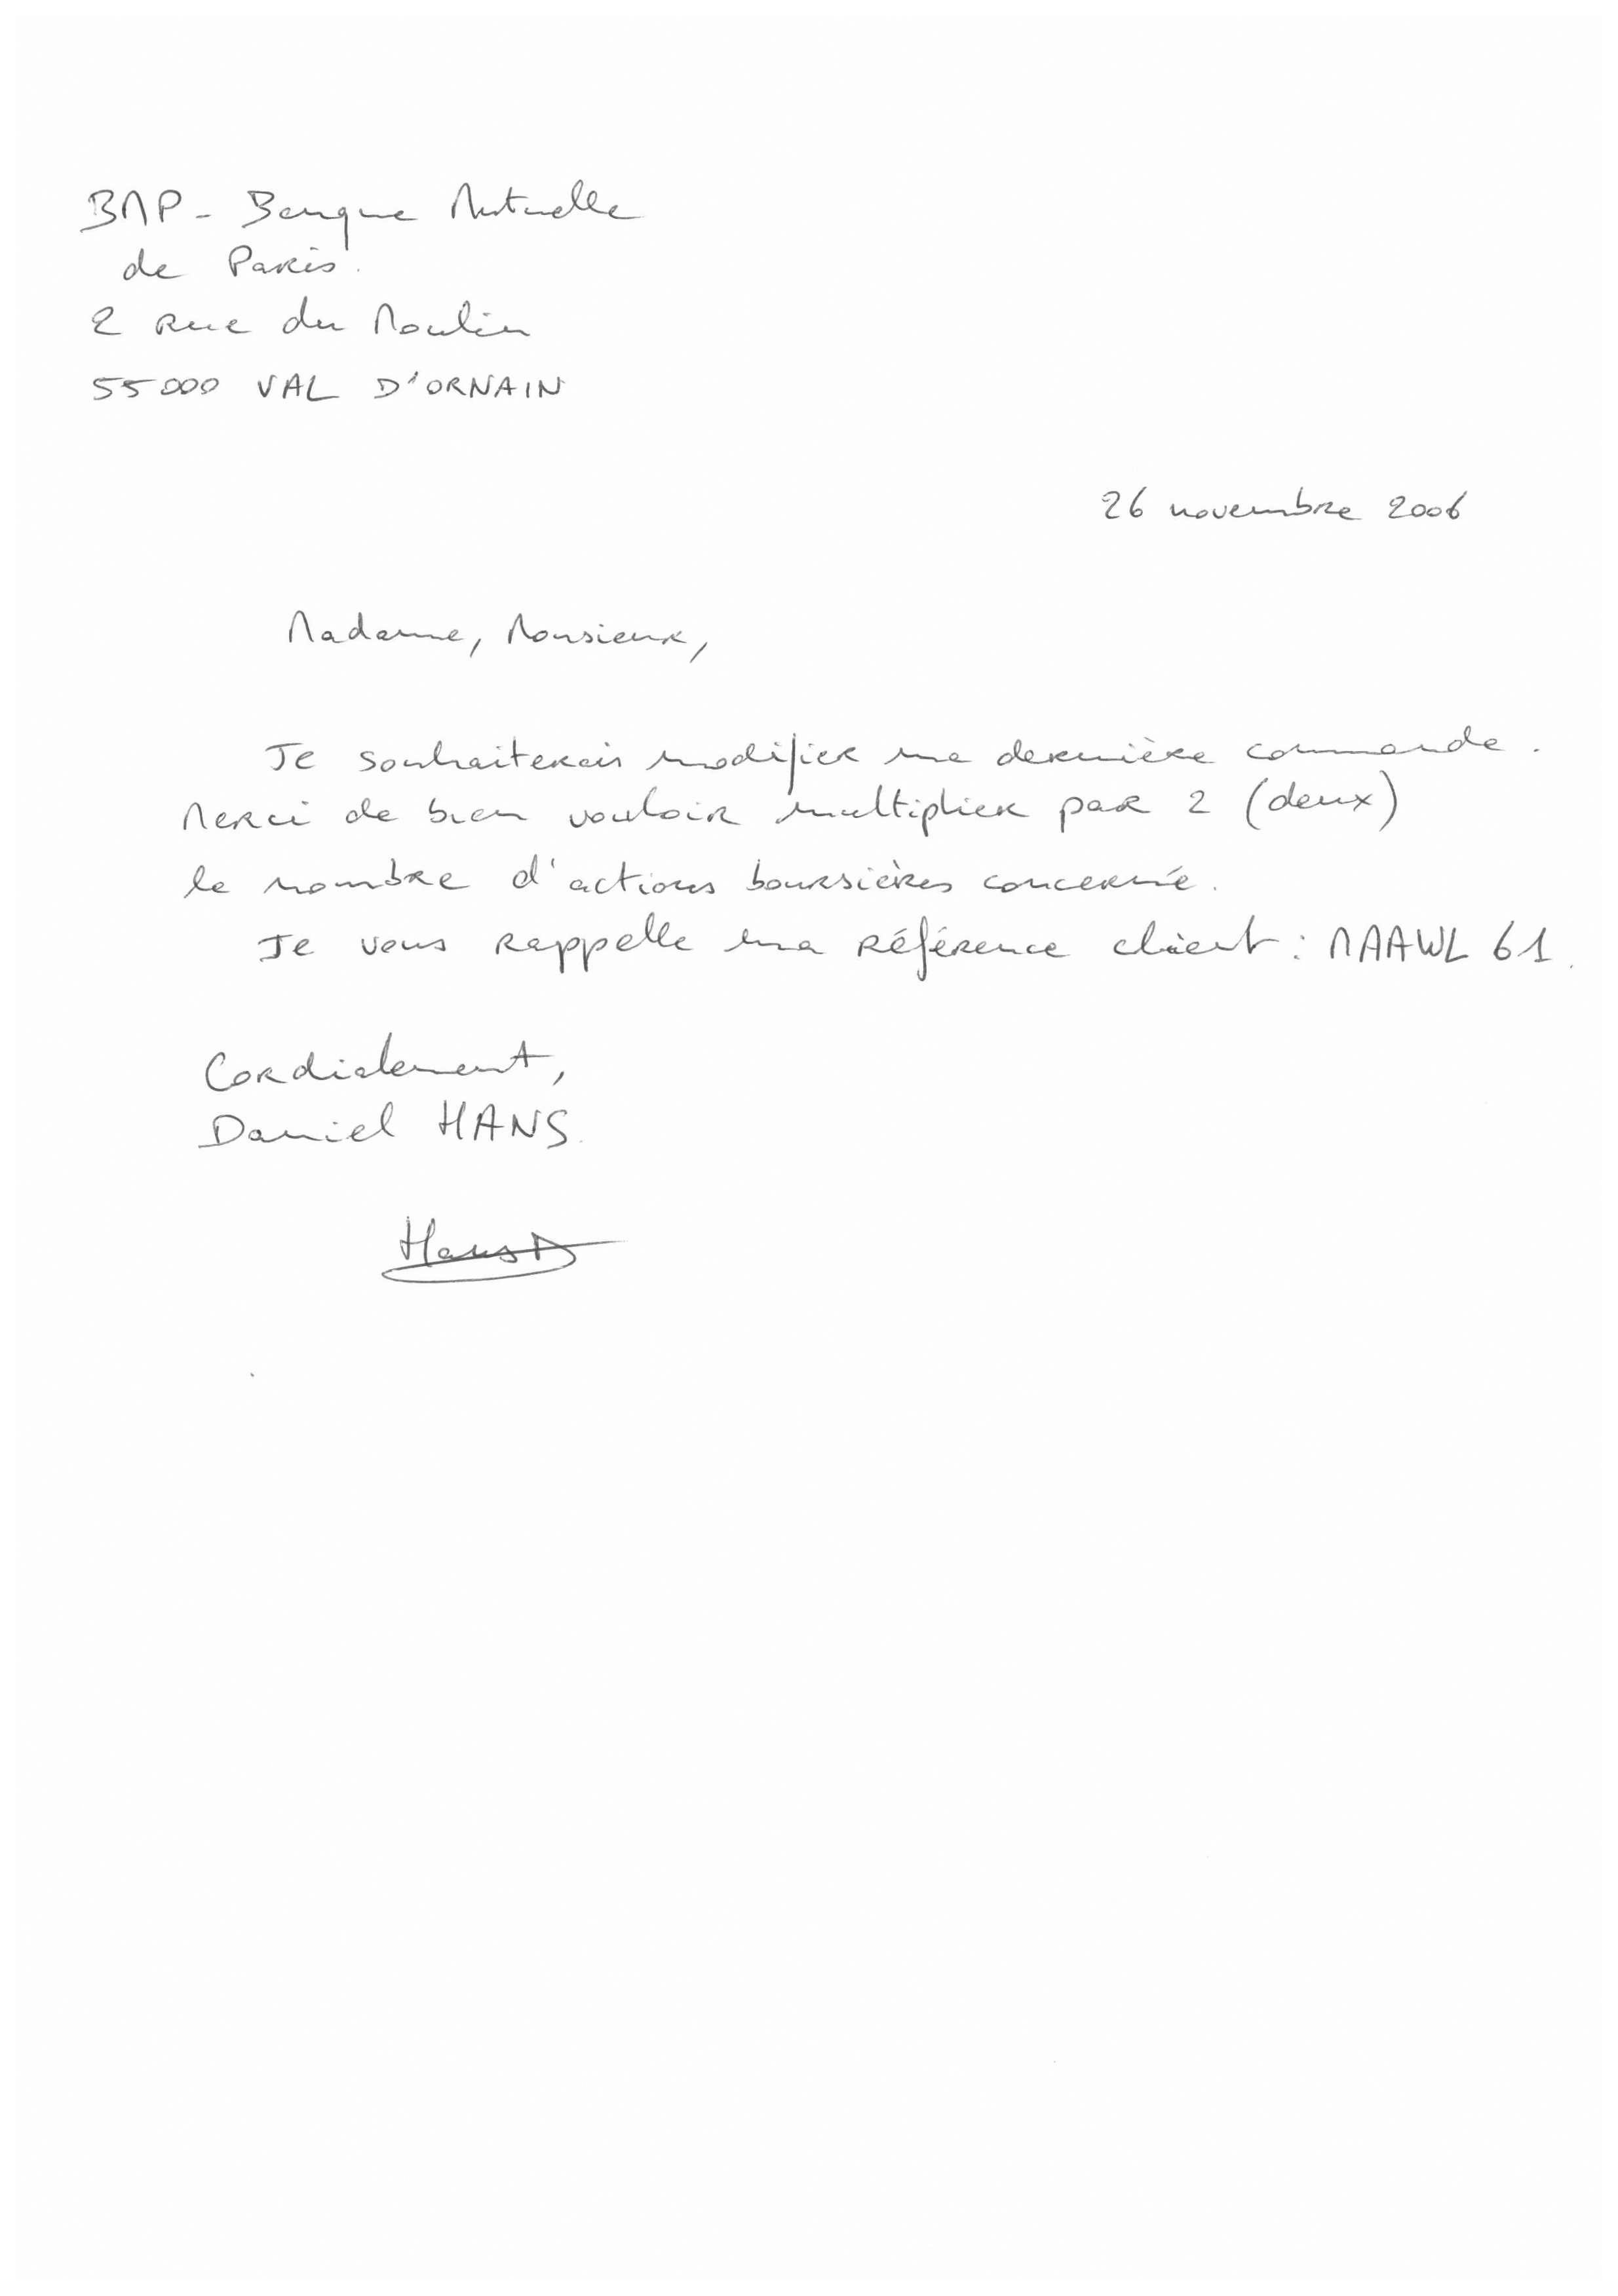 BMP - Banque Mutuelle
de Paris.
2 rue du Moulin
55000 VAL D'ORNAIN
26 novembre 2006
Madame, Monsieur,
Je souhaiterais modifier ma dernière commande.
Merci de bien vouloir multiplier par 2 (deux)
le nombre d'actions boursières concerné.
Je vous rappelle ma référence client : MAAWL 61.
Cordialement,
Daniel HANS.
Hans D